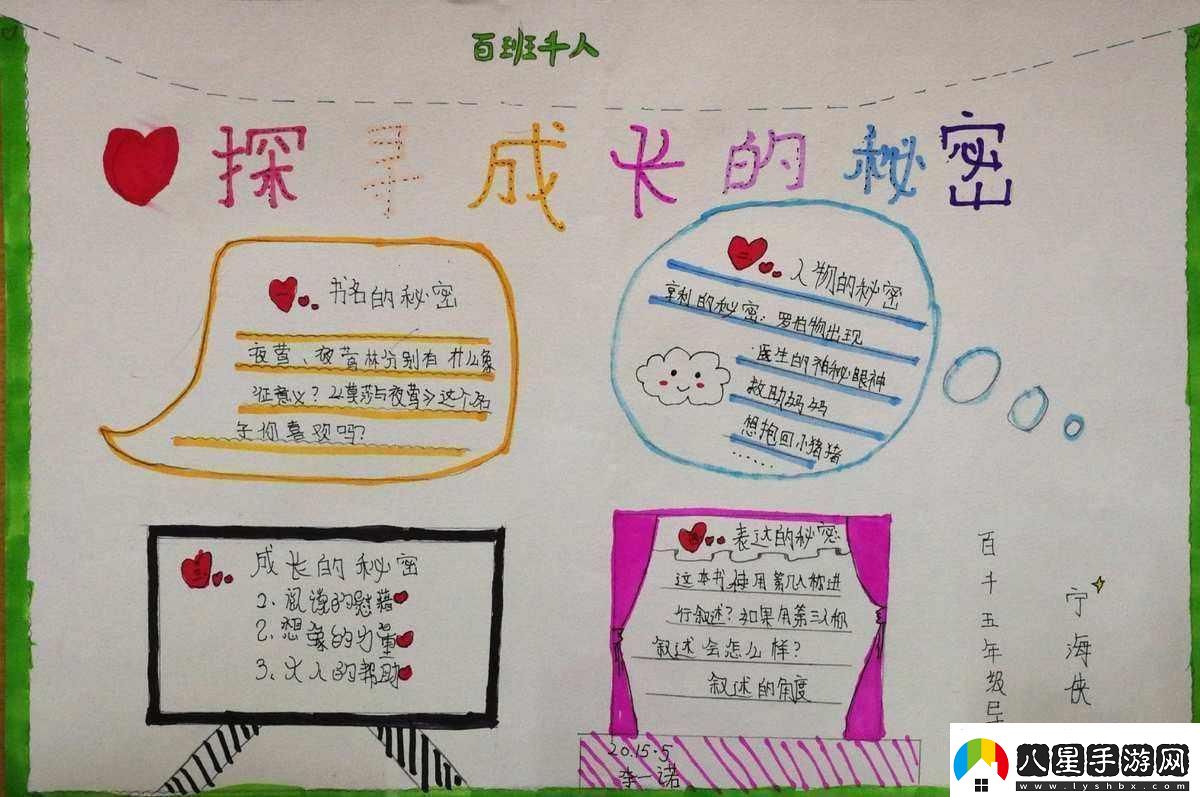 百班千人
探寻成长的秘密
一
书名的秘密
夜莺、夜莺林分别有什么象
征意义？《莫莎与夜莺》这个名
字你喜欢吗？
二
人物的秘密
亨利的秘密：罗伯物出现
医生的神秘眼神
救助妈妈
想抱回小猪猪
……
三
成长的秘密
1、阅读的慰藉
2、想象的力量
3、大人的帮助
四
表达的秘密
这本书使用第几人称进
行叙述？如果用第三人称
叙述会怎么样？
叙述的角度
2015.5
李一诺
百千五年级
宁海侠
八星手游网
www.lyshbx.com